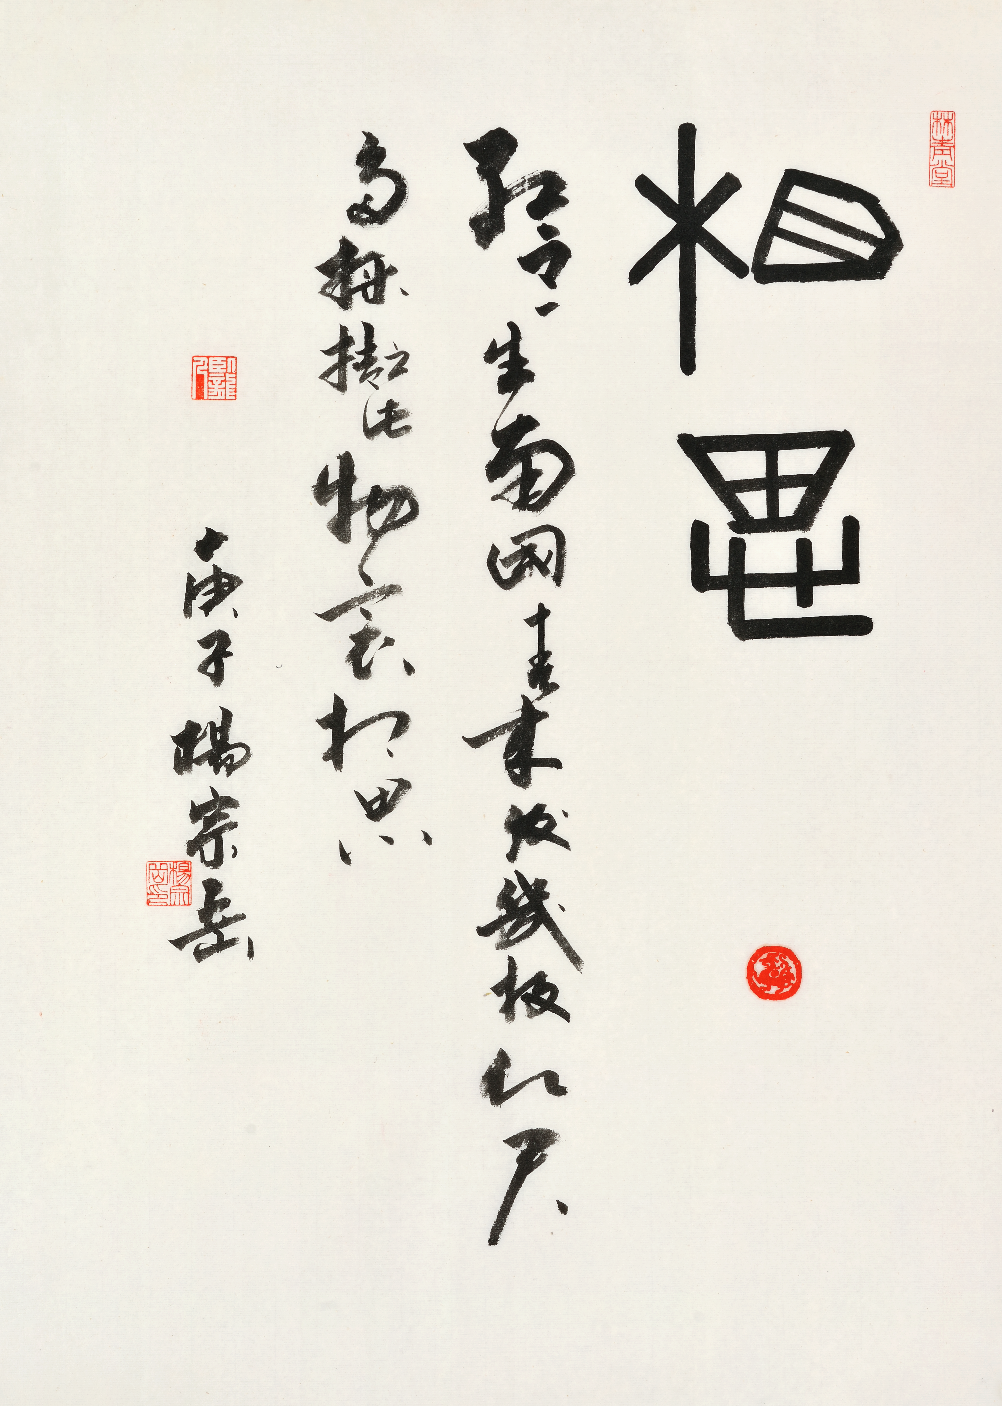 相思
紅豆生南國春來發幾枝願君
多採擷此物最相思
庚子楊宗岳
楊宗岳印